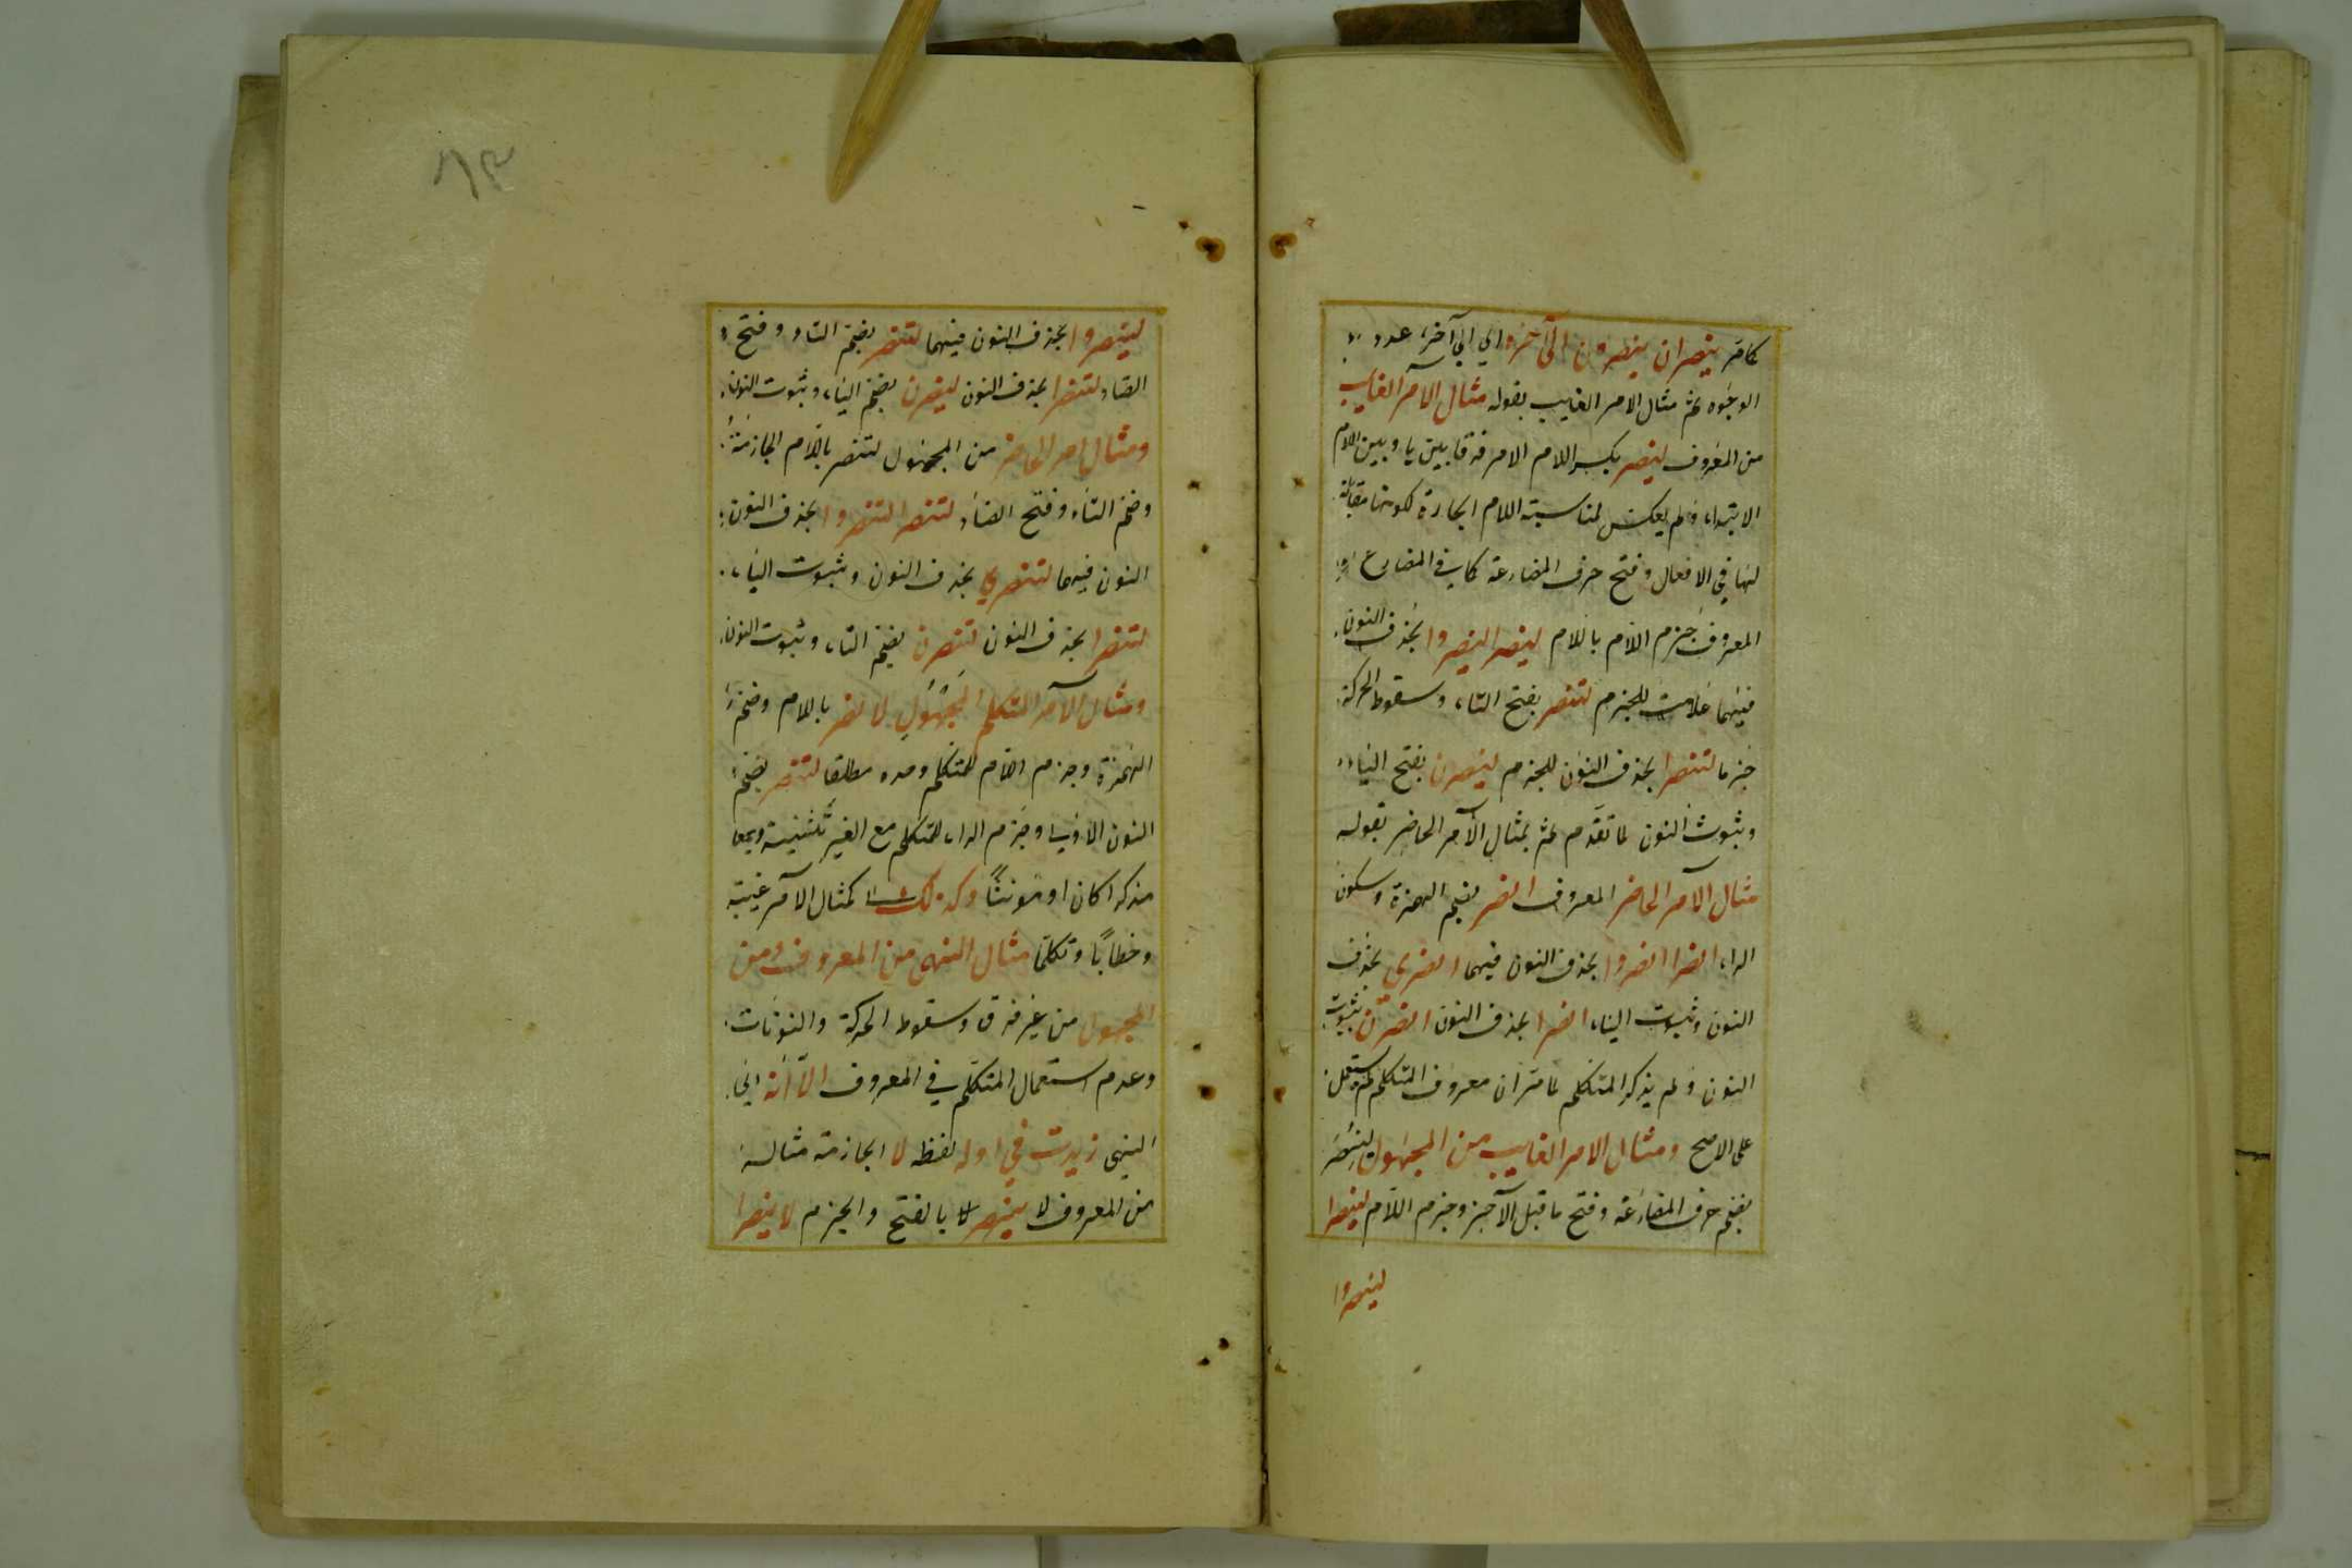 كامر ينصران ينصرون الى آخره اي الى آخر عدد
الوجوه ثم مثال الامر الغايب بقوله مثال الامر الغايب
من المعروف لينصر بكسر اللام الامر فرقا بين يا وبين اللام
الابتداء ولم يعكس لمناسبته اللام الجارة لكونها مقابلة
لها في الافعال وفتح حرف المضارعة كما في المضارع
المعروف جزم اللام باللام لينصرا لينصروا بحذف النون
فيهما علامت للجزم لتنصر بفتح التاء وسقوط الحركة
جزما لتنصرا بحذف النون للجزم لينصرن بفتح الياء
وثبوت النون لما تقدم ثم بمثال الآمر الحاضر بقوله
مثال الآمر الحاضر المعروف انصر بضم الهمزة وسكون
الراء انصرا انصروا بحذف النون فيهما انصري بحذف
النون وثبوت الياء انصرا بحذف النون انصرن بثبوت
النون ولم يذكر المتكلم لما مر ان معروف المتكلم لم يستعمل
على الاصح ومثال الامر الغايب من المجهول لينصر
بضم حرف المضارعة وفتح ما قبل الآخر وجزم اللام لينصرا
لينصروا
٦٣
لينصروا بحذف النون فيهما لتنصر بضم التاء وفتح
الصاد لتنصرا بحذف النون لينصرن بضم الياء وثبوت النون
ومثال امر الحاضر من المجهول لتنصر باللام الجازمة
وضم التاء وفتح الصاد لتنصرا لتنصروا بحذف النون
النون فيهما لتنصري بحذف النون وثبوت الياء
لتنصرا بحذف النون لتنصرن بضم التاء وثبوت النون
ومثال الآمر المتكلم المجهول لانصر باللام وضم
الهمزة وجزم اللام للمتكلم وحده مطلقا لتنصر بضم
النون الاولى وجزم الراء للمتكلم مع الغير تثنية وجمعا
مذكرا كان او مونثا وكذلك كمثال الآمر غيبة
وخطابا وتكلما مثال النهى من المعروف ومن
المجهول من غير فرق وسقوط الحركة والنونات
وعدم استعمال المتكلم في المعروف الا أنه اي
النهى زيدت في اوله لفظ لا الجازمة مثاله
من المعروف لا ينصر بالفتح والجزم لا ينصرا